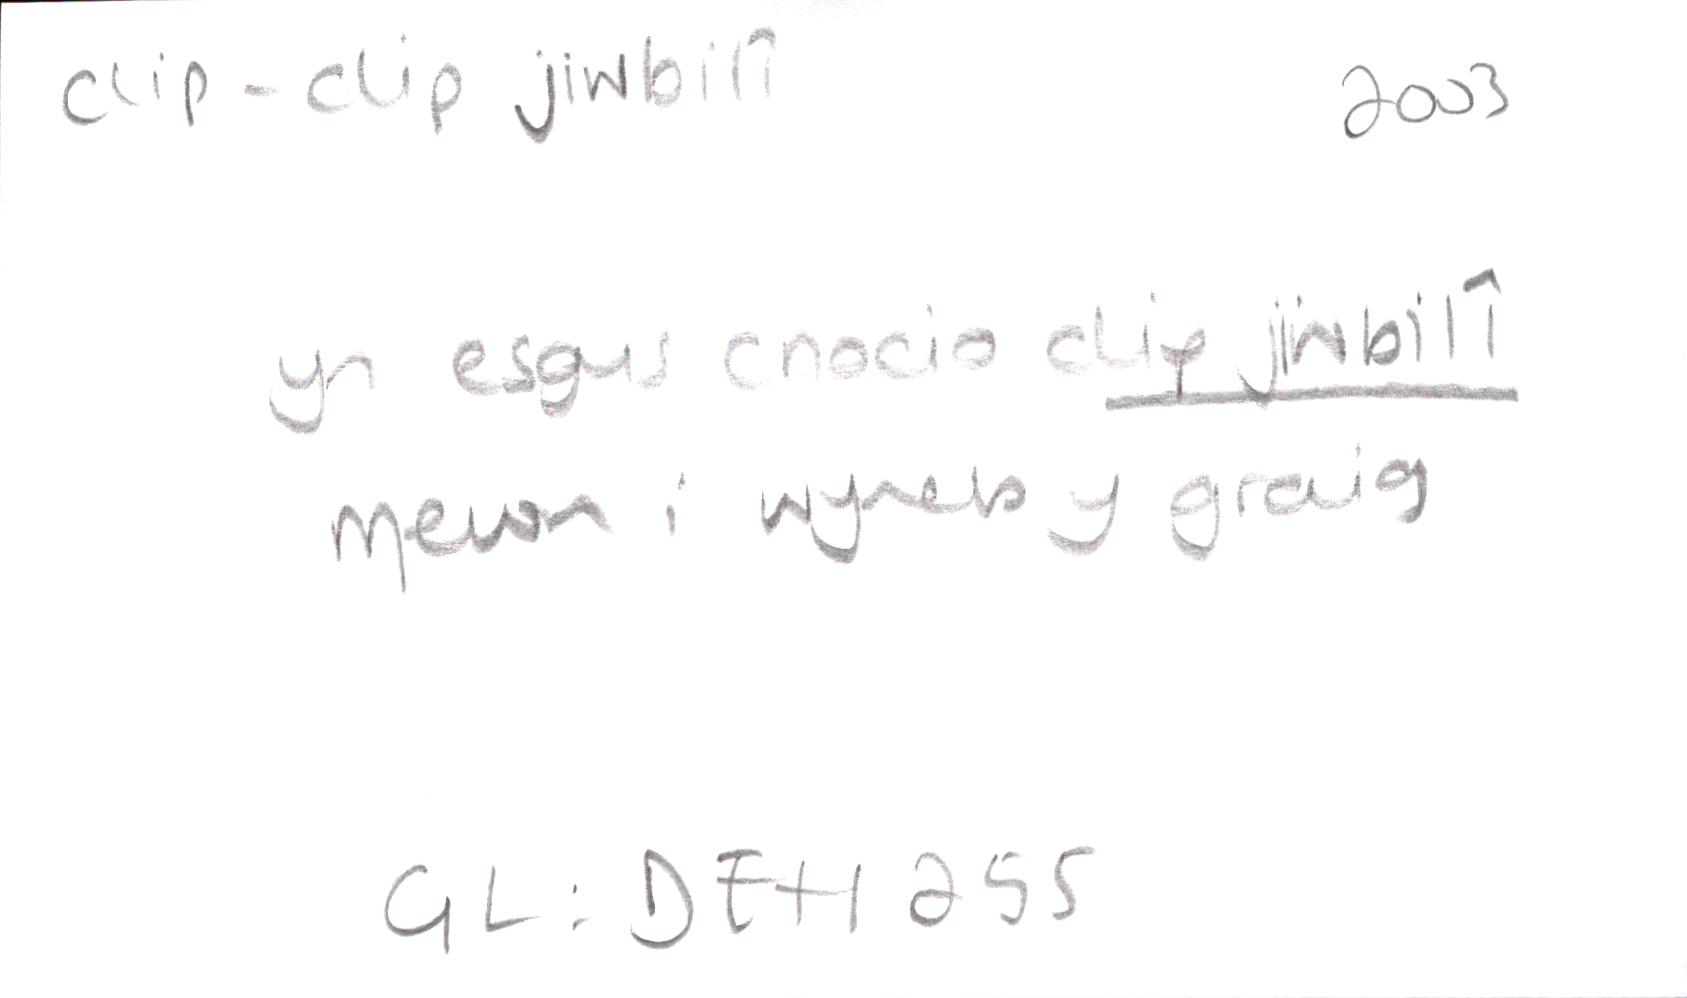 clip-clip jiwbilî 2003
yn esgus cnocio clip jiwbilî
mewn i wyneb y graig
GL: DEH 255